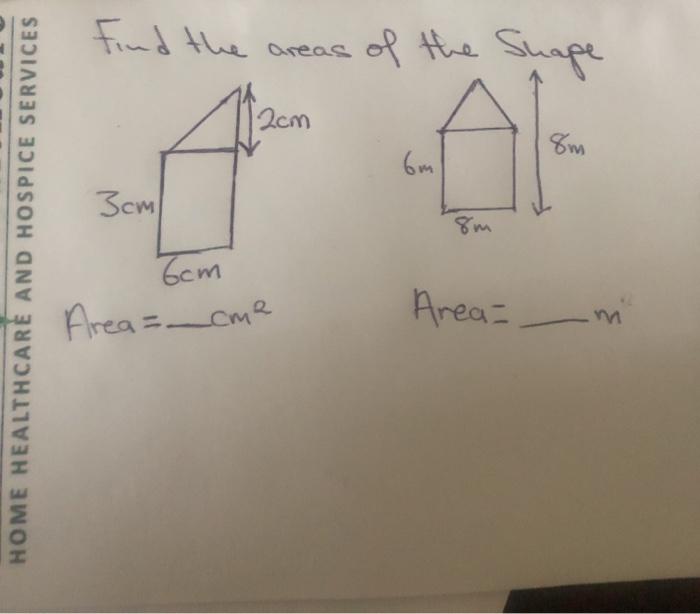 HOME HEALTHCARE AND HOSPICE SERVICES
Find the areas of the Shape
2cm
3cm
6cm
Area = __ cm²
6m
8m
8m
Area = __ m²